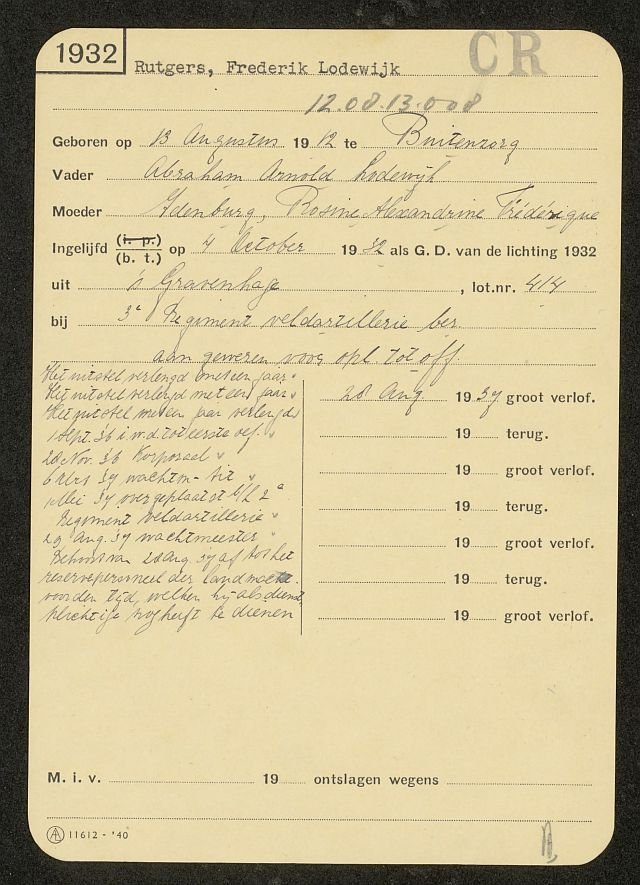 1932
CR
Rutgers, Frederik Lodewijk
12.08.13.008
Geboren op 13 Augustus 1912 te Buitenzorg
Vader Abraham Arnold Lodewijk
Moeder Idenburg, Rosine Alexandrine Frédérique
Ingelijfd (i. p.) (b. t.) op 4 October 1932 als G. D. van de lichting 1932
uit 's Gravenhage, lot.nr. 414
bij 3e Regiment veldartillerie ber.
aan geweren voor opl tot off
Uitstel verlengd met een jaar.
Uitstel verlengd met een jaar.
Uitstel met een jaar verlengd
1 Sept. '36 i.w.d. tot eerste oef.
20 Nov. 36 Korporaal
6 37 wachtm- tit
1 Mei 37 overgeplaatst b/h 2e
Regiment Veldartillerie
29 Aug. 37 wachtmeester
Behoort van 28 Aug. 37 af tot het
reservepersoneel der landmacht.
voor den tijd, welken hij als dienst
plichtige nog heeft te dienen
28 Aug 1937 groot verlof.
19 terug.
19 groot verlof.
19 terug.
19 groot verlof.
19 terug.
19 groot verlof.
M. i. v. 19 ontslagen wegens
11612 - '40